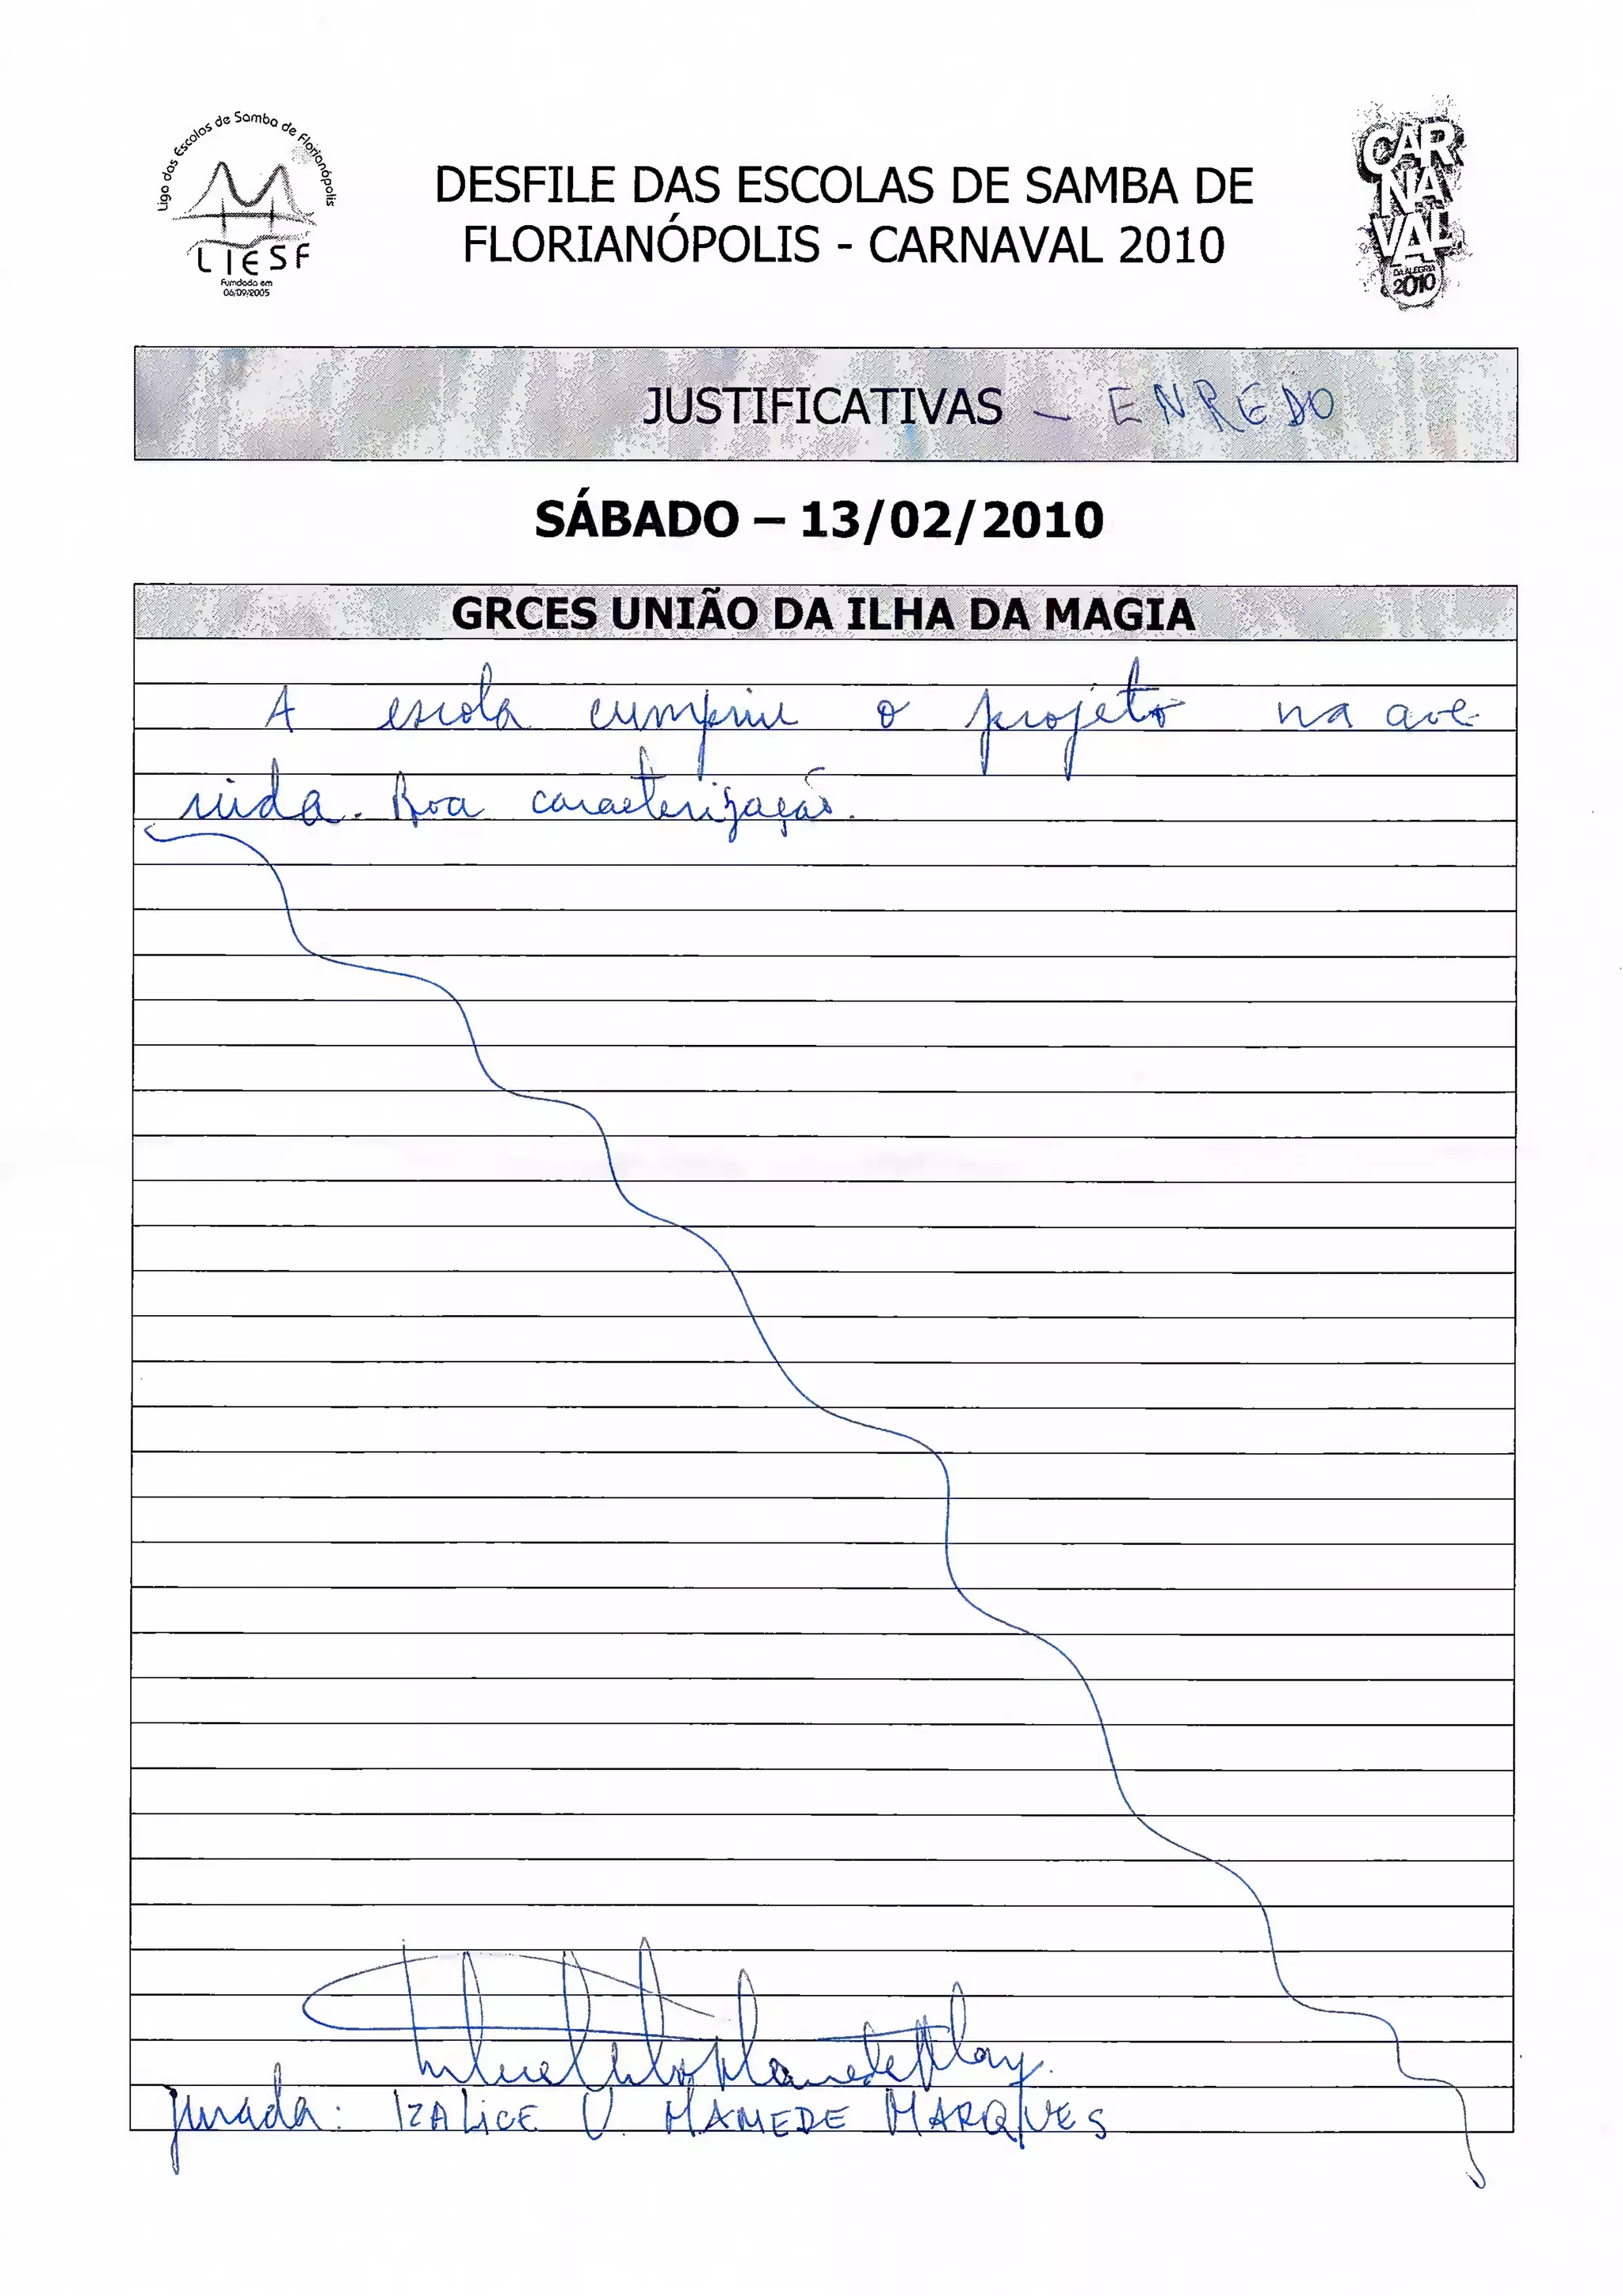 Liga das Escolas de Samba de Florianópolis
LIESF
Fundada em
06/09/2005
DESFILE DAS ESCOLAS DE SAMBA DE
FLORIANÓPOLIS - CARNAVAL 2010
CAR
NA
VAL
DA ALEGRIA
2010
JUSTIFICATIVAS - ENREDO
SÁBADO – 13/02/2010
GRCES UNIÃO DA ILHA DA MAGIA
A escola cumpriu o projeto na ave-
nida. Boa caracterização.
Jurada: IZALICE V. MAMEDE MARQUES